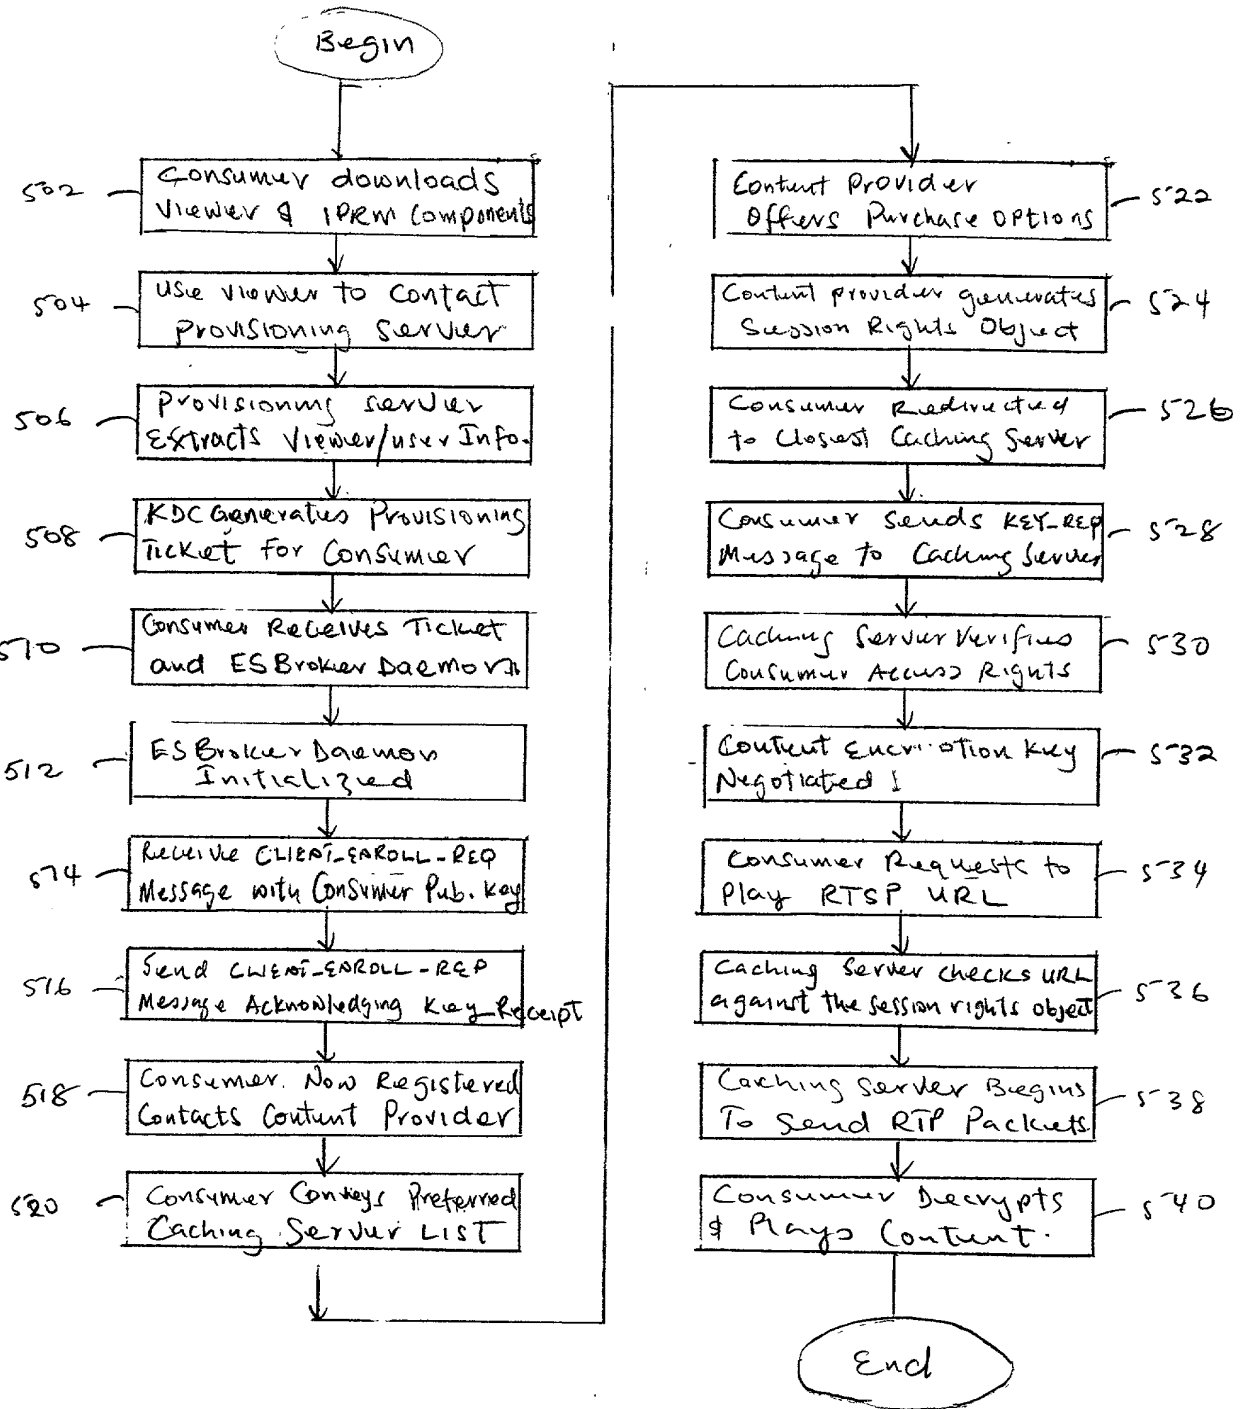 Begin
502
Consumer downloads
Viewer & IPRM Components
504
Use Viewer to Contact
Provisioning Server
506
Provisioning Server
Extracts Viewer/user Info.
508
KDC Generates Provisioning
Ticket For Consumer
510
Consumer Receives Ticket
and ESBroker Daemon
512
ESBroker Daemon
Initialized
514
Receive CLIENT_ENROLL_REQ
Message with Consumer Pub. Key
516
Send CLIENT_ENROLL_REP
Message Acknowledging Key Receipt
518
Consumer Now Registered
Contacts Content Provider
520
Consumer Conveys Preferred
Caching Server LIST
522
Content Provider
Offers Purchase Options
524
Content provider generates
Session Rights Object
526
Consumer Redirected
to Closest Caching Server
528
Consumer Sends KEY_REQ
Message to Caching Server
530
Caching Server Verifies
Consumer Access Rights
532
Content Encryption Key
Negotiated
534
Consumer Requests to
Play RTSP URL
536
Caching Server checks URL
against the session rights object
538
Caching Server Begins
To Send RTP Packets
540
Consumer Decrypts
& Plays Content.
End